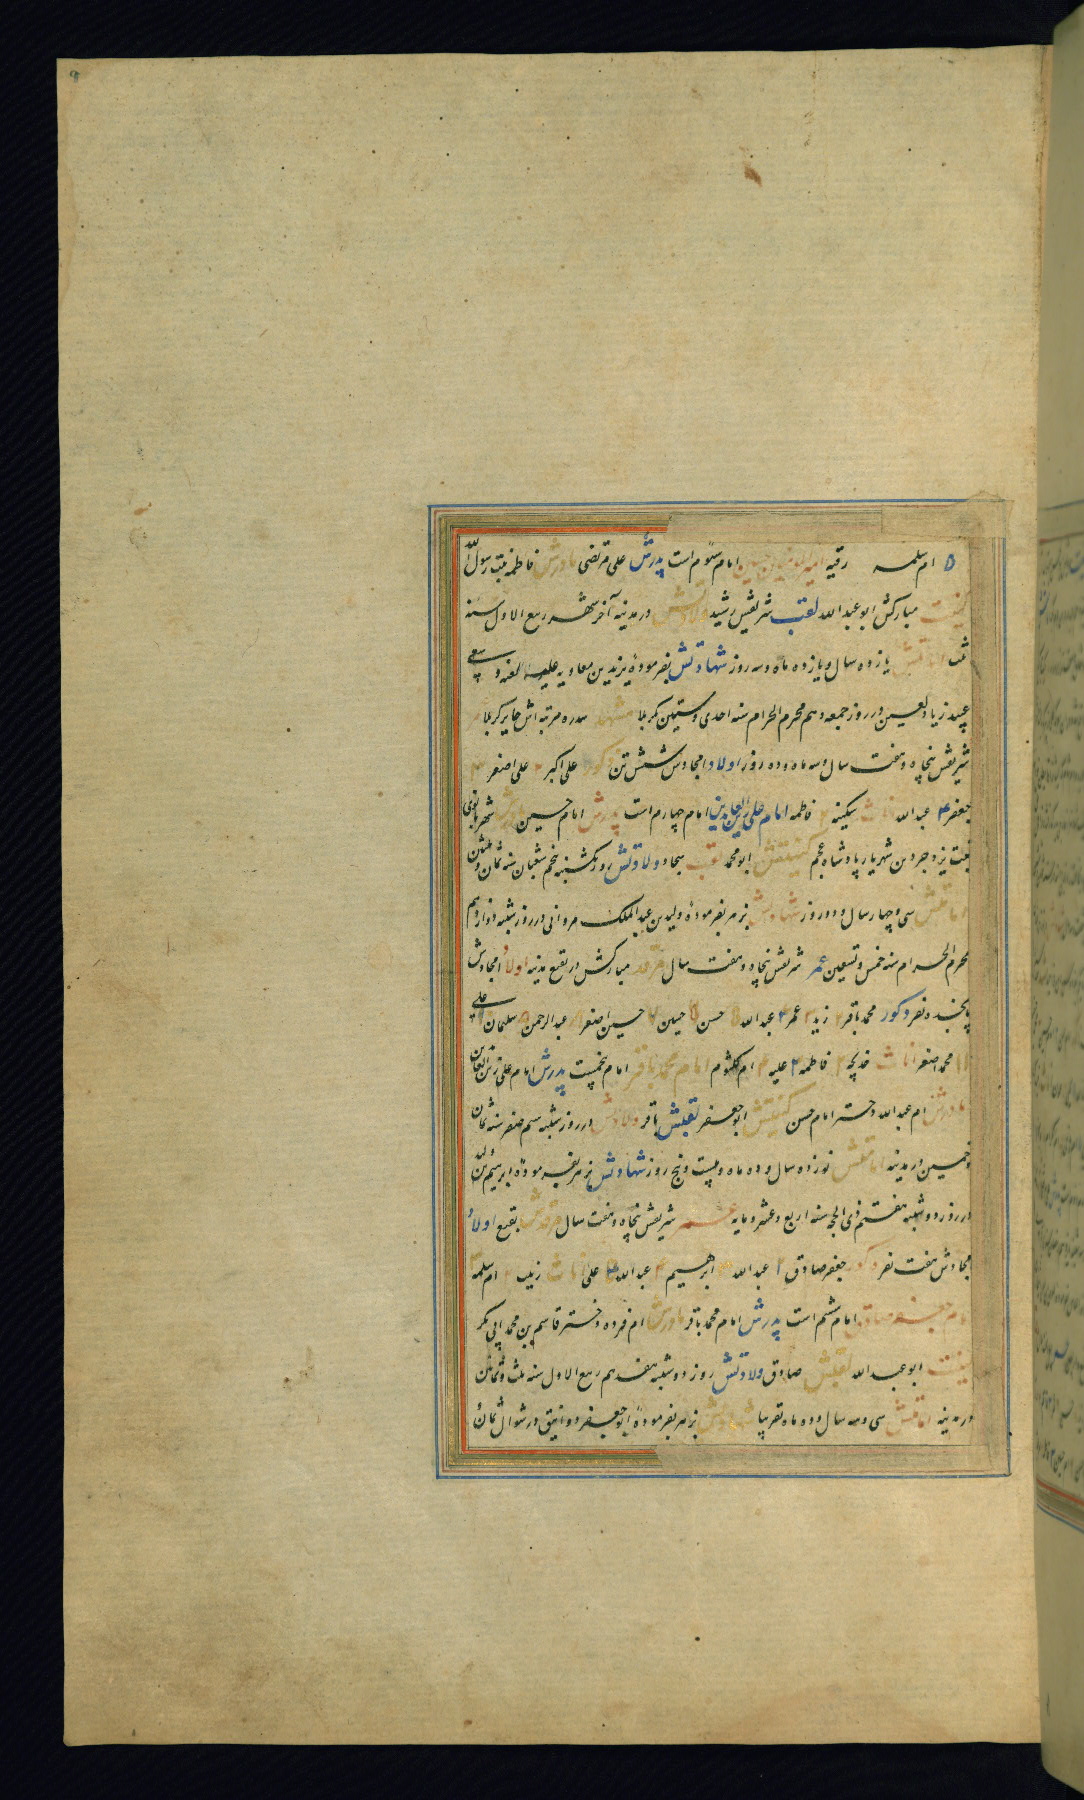 ۵ ام سلمه رقیه امیرالمؤمنین حسین امام سوم است پدرش علی مرتضی مادرش فاطمه بنت رسول الله
کنیت مبارکش ابو عبد الله لقب شریفش رشید ولادتش در مدینه آخر شهر ربیع الاول سنه
ثلث امامتش یازده سال و یازده ماه و سه روز شهادتش بفرمودهٔ یزید بن معاویه علیه اللعنه و سعی
عبید زیاد لعین در روز جمعه دهم محرم الحرام سنه احدی و ستین کربلا مشهد سدره مرتبه اش حایر کربلا
شریفش پنجاه و هفت سال و سه ماه و ده روز اولاد امجادش شش تن ذکور علی اکبر ۲ علی اصغر ۳
جعفر ۴ عبد الله اناث سکینه ۲ فاطمه امام علی زین العابدین امام چهارم است پدرش امام حسین مادرش شهربانوی
بنت یزدجرد بن شهریار پادشاه عجم کنیتش ابو محمد لقب سجاد ولادتش روز یکشنبه پنجم شعبان سنه ثمان و ثلثین
امامتش سی و چهار سال و دو روز شهادتش بزهر بفرمودهٔ ولید بن عبد الملک مروانی در روز شنبه دوازدهم
محرم الحرام سنه خمس و تسعین عمر شریفش پنجاه و هفت سال مرقد مبارکش در بقیع مدینه اولاد امجادش
پانجده نفر ذکور محمد باقر ۲ زید ۳ عمر ۴ عبد الله ۵ حسن ۶ حسین ۷ حسین اصغر ۸ عبد الرحمن ۹ سلیمان ۱۰ علی
۱۱ محمد اصغر اناث خدیجه ۲ فاطمه ۳ علیه ۴ ام کلثوم امام محمد باقر امام پنجمست پدرش امام علی زین العابدین
مادرش ام عبد الله دختر امام حسن کنیتش ابو جعفر لقبش باقر ولادتش در روز شنبه سیم صفر سنه ثمان
و خمسین در مدینه امامتش نوزده سال و ده ماه و بیست و پنج روز شهادتش بزهر بفرمودهٔ ابرهیم بن ولید
در روز دوشنبه هفتم ذی الحجه سنه اربع و عشر و مایه عمر شریفش پنجاه و هفت سال مرقدش بقیع اولاد
امجادش هفت نفر ذکور جعفر صادق ۲ عبد الله ۳ ابرهیم ۴ عبد الله ۵ علی اناث زینب ۲ ام سلمه
امام جعفر صادق امام ششم است پدرش امام محمد باقر مادرش ام فروه دختر قاسم بن محمد ابی بکر
کنیت ابو عبد الله لقبش صادق ولادتش روز دوشنبه هفدهم ربیع الاول سنه ثلث و ثمانین
در مدینه امامتش سی و سه سال و ده ماه تقریبا شهادتش بزهر بفرمودهٔ ابو جعفر دوانیق در شوال ثمان